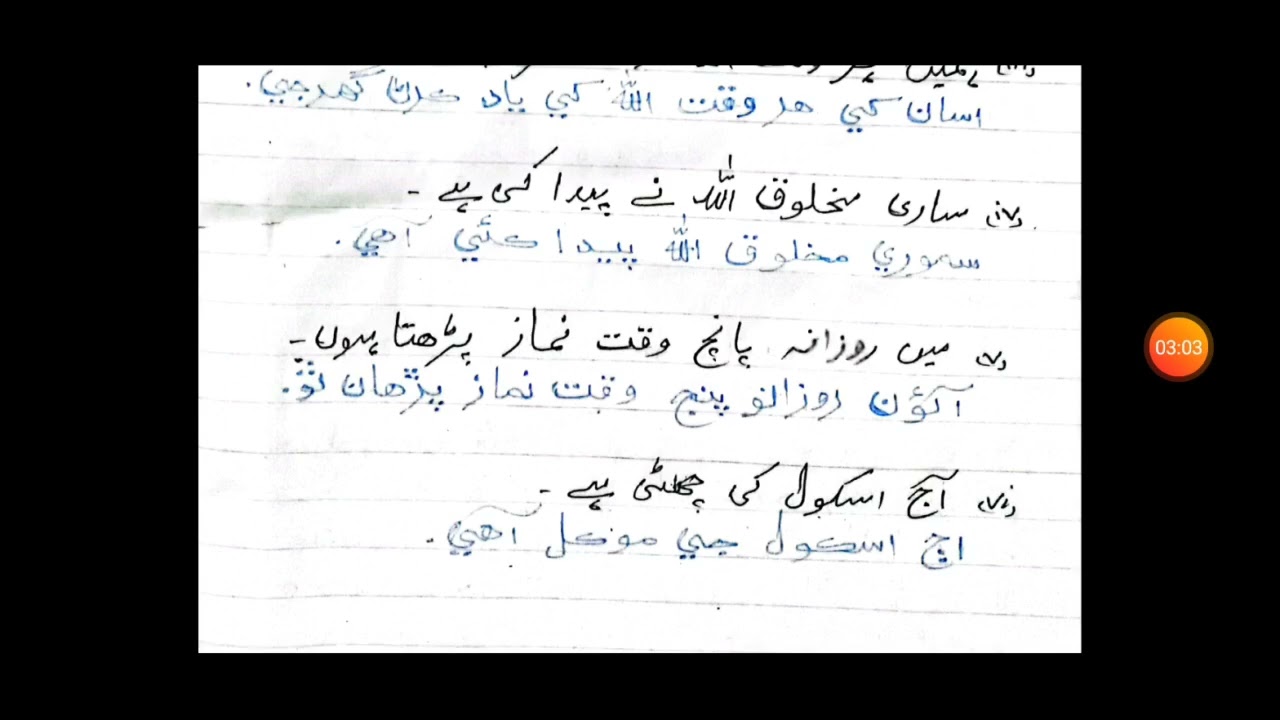 ہمیں ہر وقت
اسان کي هر وقت الله کي ياد ڪرڻ گھرجي.
(iv) ساری مخلوق اللہ نے پیدا کی ہے ۔
سموري مخلوق الله پيدا ڪئي آهي.
(v) میں روزانہ پانچ وقت نماز پڑھتا ہوں۔
آئون روزانو پنج وقت نماز پڙهان ٿو.
(vi) آج اسکول کی چھٹی ہے ۔
اڄ اسڪول جي موڪل آهي.
03:03